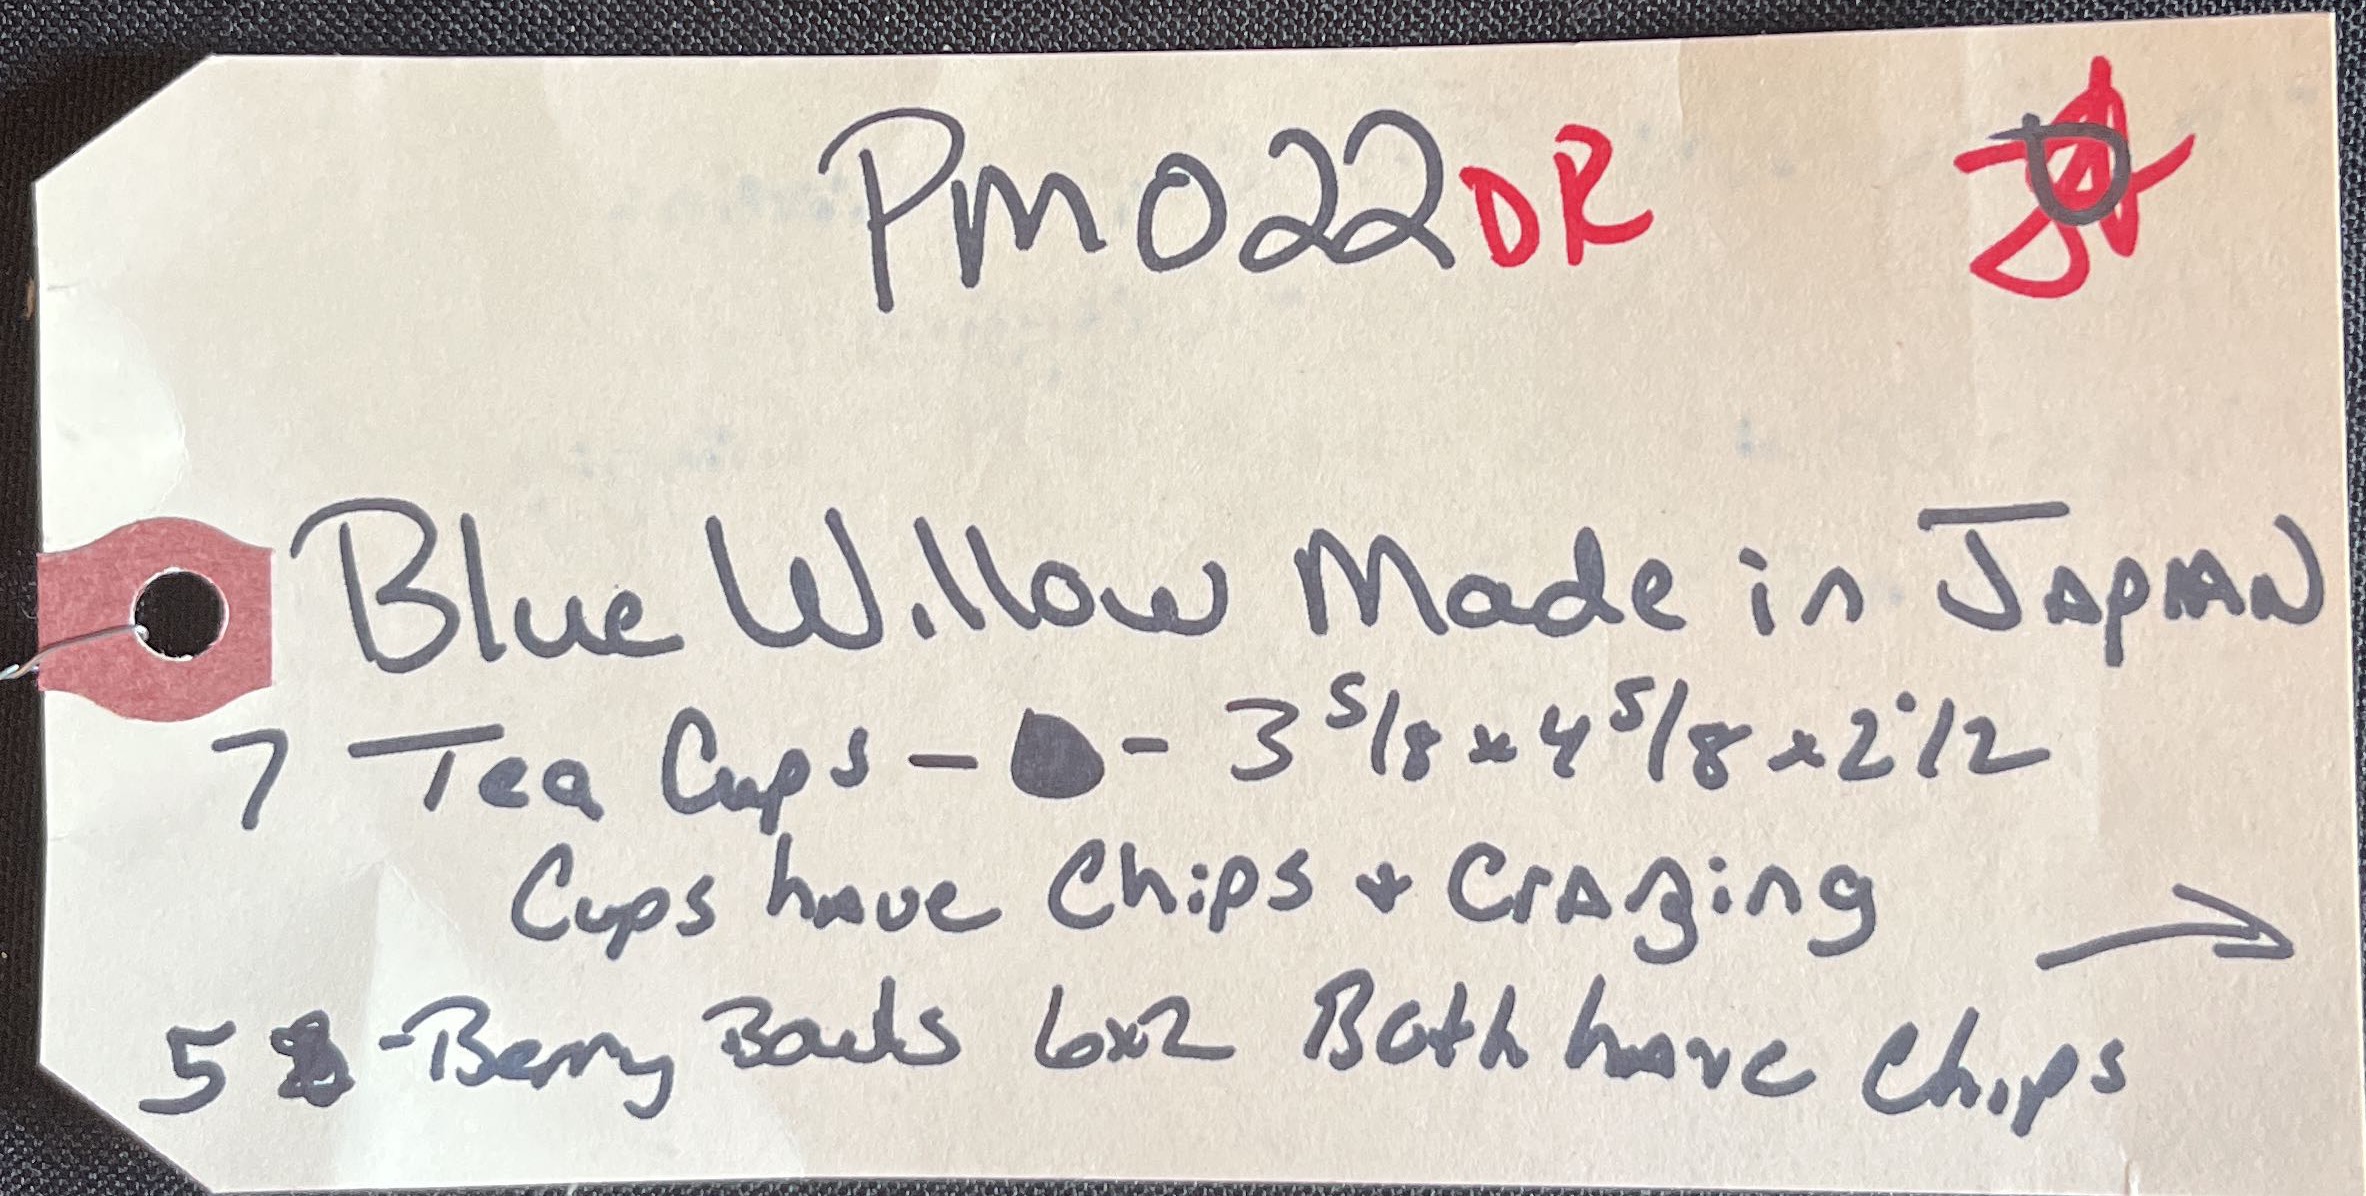 PM022 DR
Blue Willow Made in JAPAN
7 Tea Cups - - 3 5/8 x 4 5/8 x 2 1/2
Cups have Chips + Crazing
5 - Berry Bowls 6x2 Both have Chips